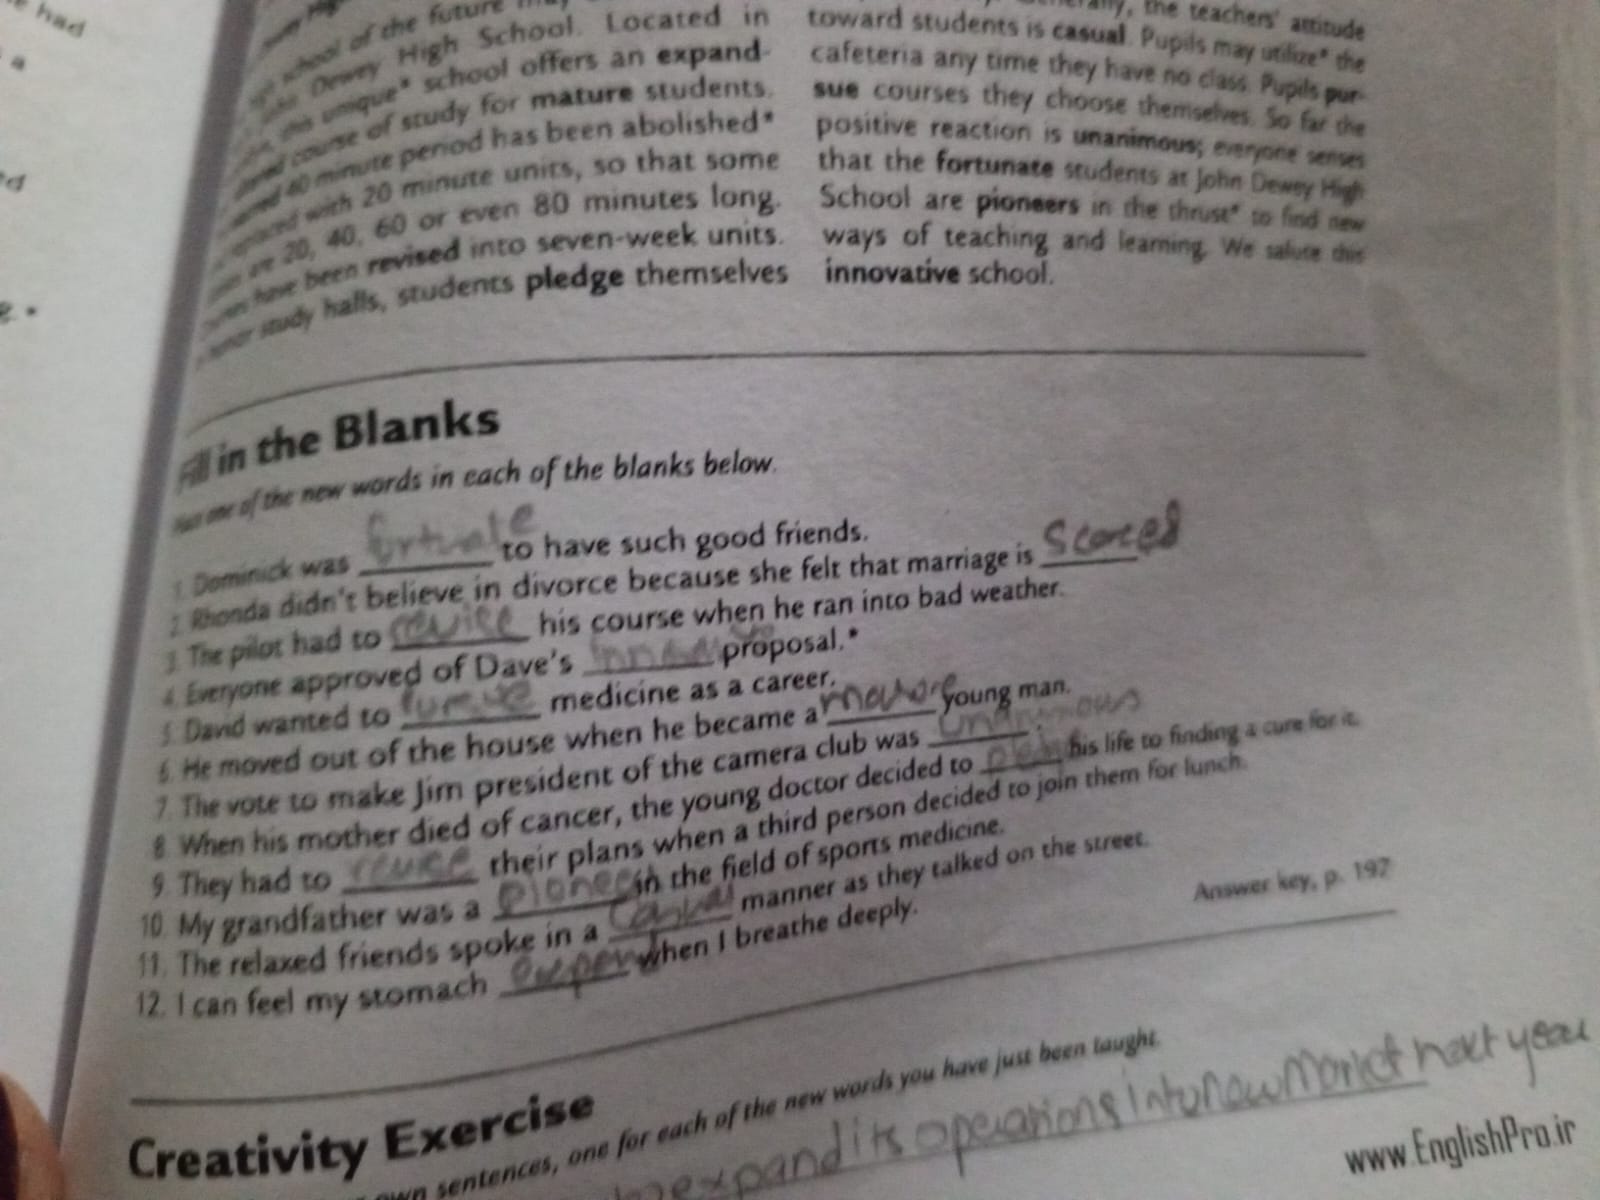 had
a
school of the future
Dewey High School. Located in
this unique* school offers an expand-
course of study for mature students.
minute period has been abolished*
with 20 minute units, so that some
are 20, 40, 60 or even 80 minutes long.
have been revised into seven-week units.
study halls, students pledge themselves
the teachers' attitude
toward students is casual. Pupils may utilize* the
cafeteria any time they have no class. Pupils pur-
sue courses they choose themselves. So far the
positive reaction is unanimous; everyone senses
that the fortunate students at John Dewey High
School are pioneers in the thrust* to find new
ways of teaching and learning. We salute this
innovative school.
Fill in the Blanks
one of the new words in each of the blanks below.
1. Dominick was to have such good friends.
2. Rhonda didn't believe in divorce because she felt that marriage is
3. The pilot had to revise his course when he ran into bad weather.
4. Everyone approved of Dave's proposal.*
5. David wanted to medicine as a career.
6. He moved out of the house when he became a young man.
7. The vote to make Jim president of the camera club was .
8. When his mother died of cancer, the young doctor decided to his life to finding a cure for it.
9. They had to revise their plans when a third person decided to join them for lunch.
10. My grandfather was a pioneer in the field of sports medicine.
11. The relaxed friends spoke in a casual manner as they talked on the street.
12. I can feel my stomach when I breathe deeply.
Answer key, p. 197
Creativity Exercise
own sentences, one for each of the new words you have just been taught.
expand its operations into new market next year
www.EnglishPro.ir